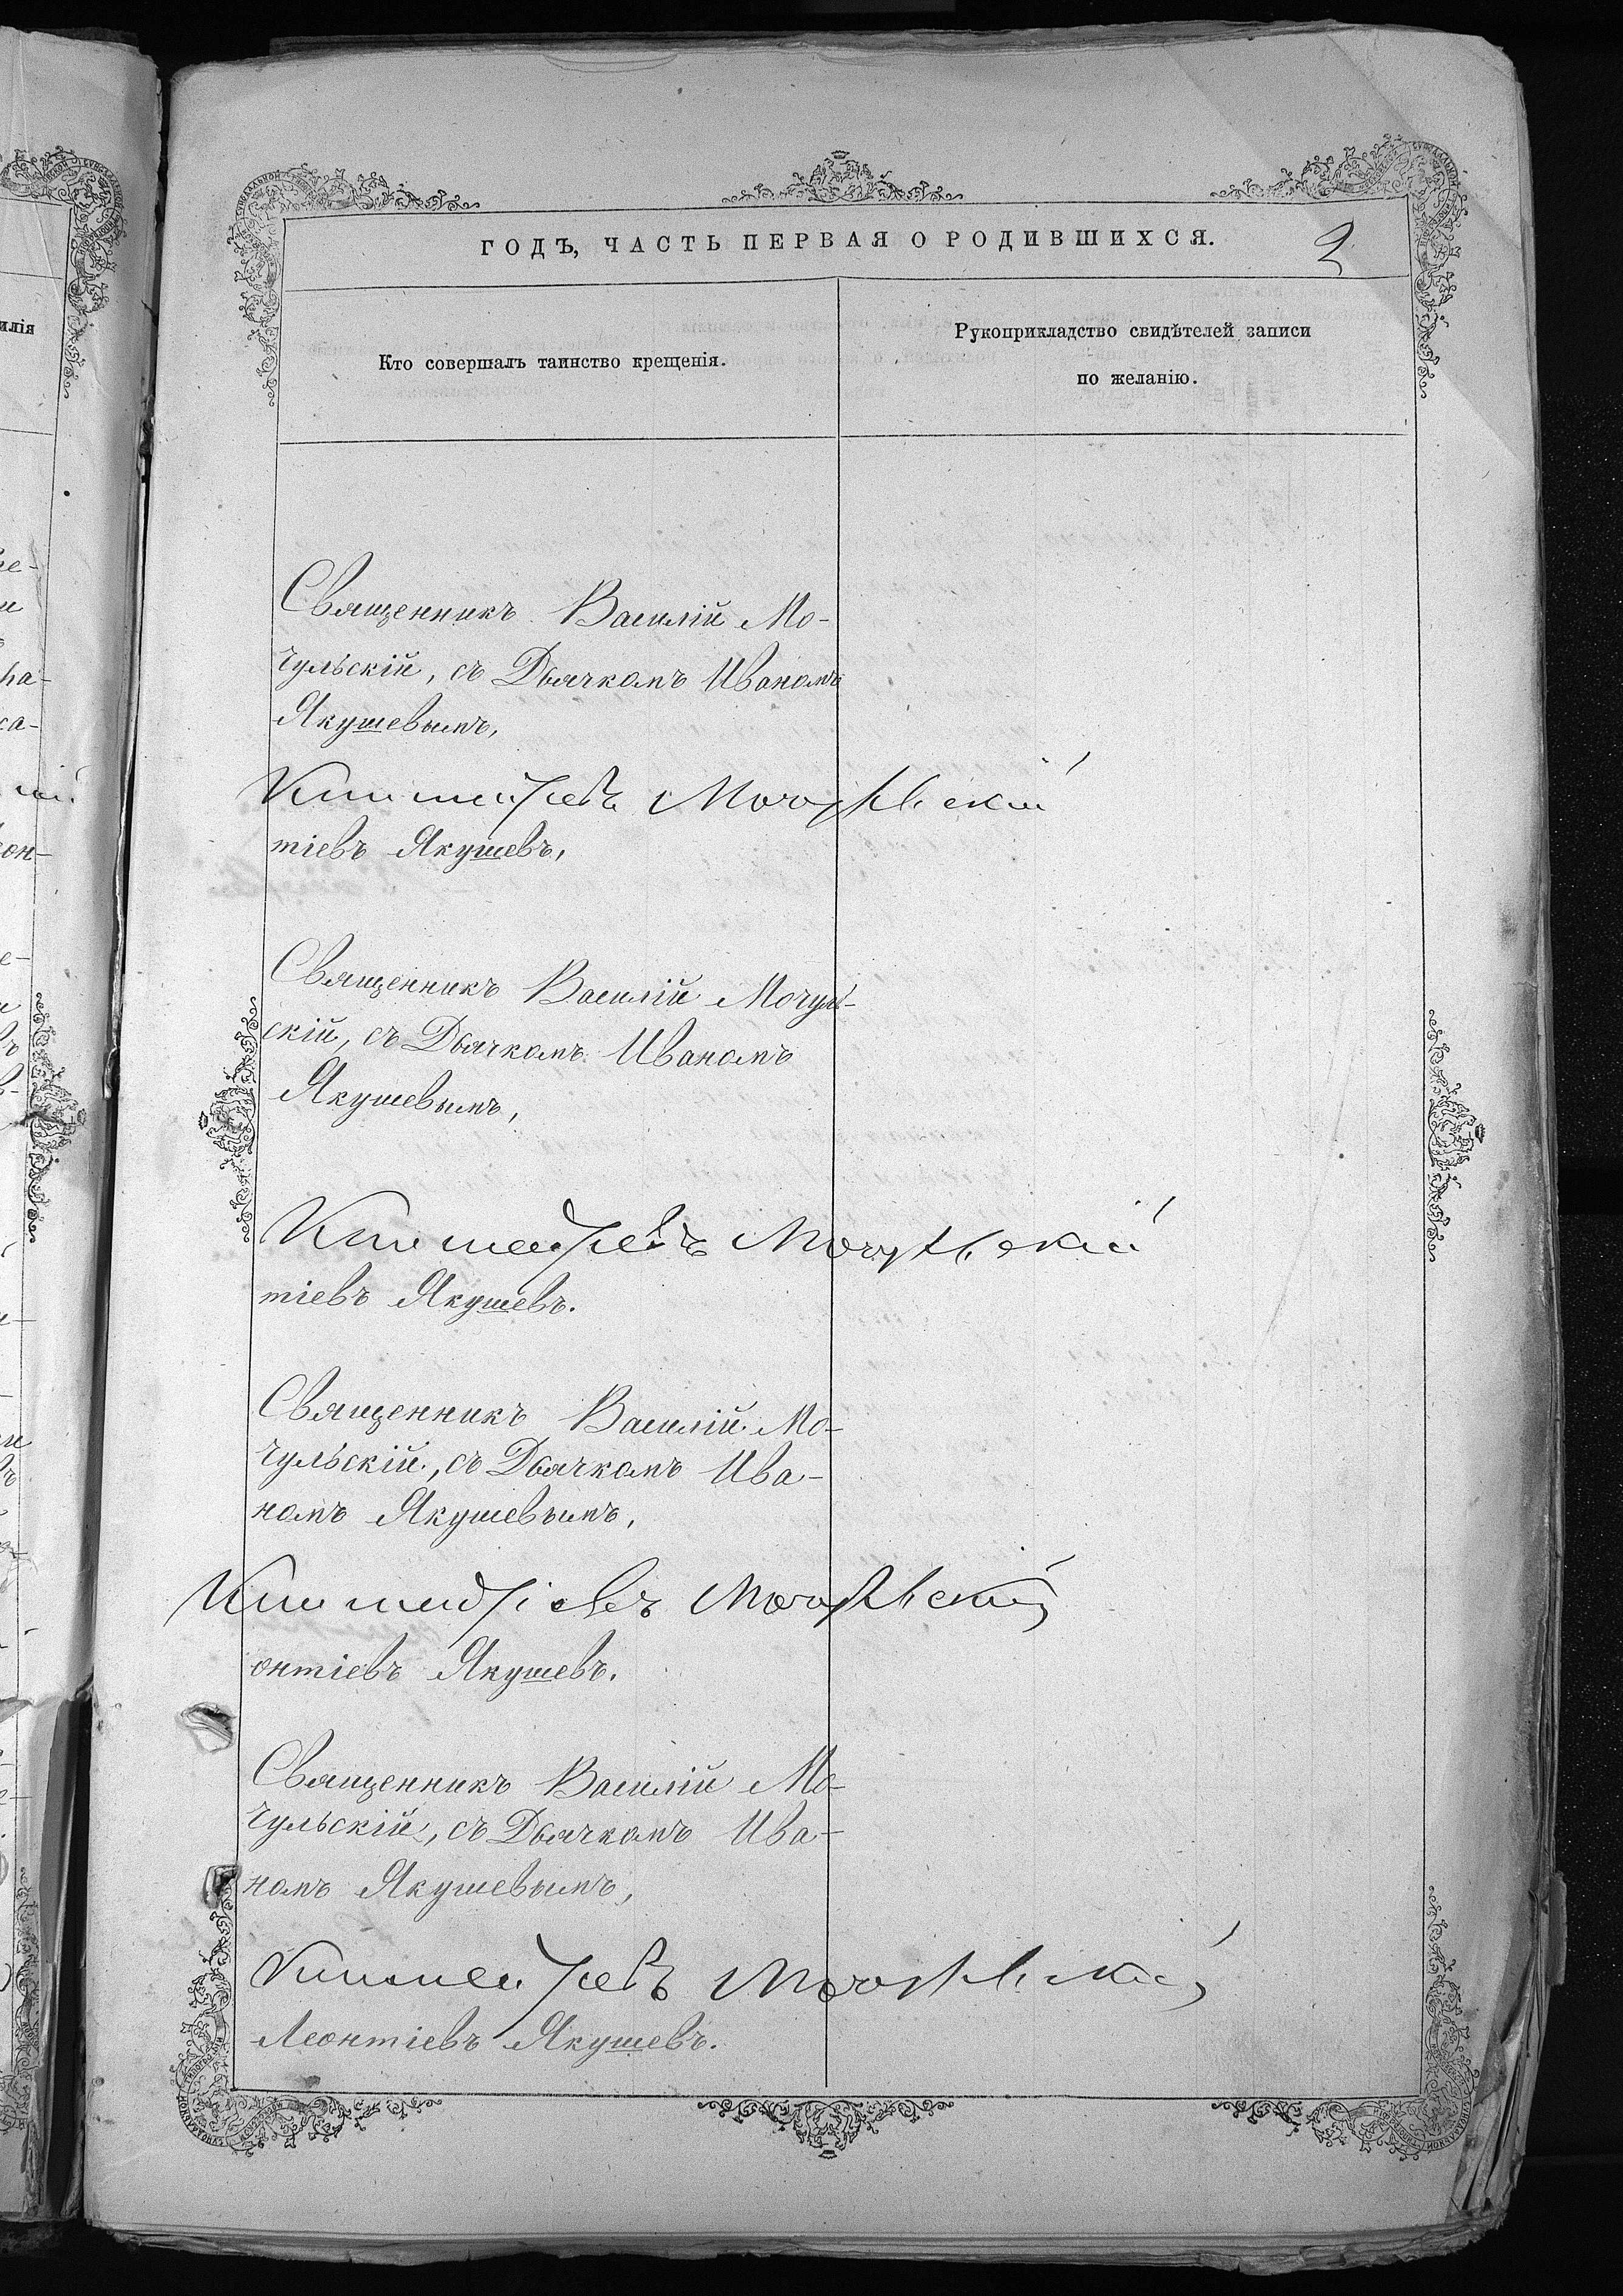 ГОДЪ, ЧАСТЬ ПЕРВАЯ О РОДИВШИХСЯ.
2
Кто совершалъ таинство крещенія.
Рукоприкладство свидѣтелей записи
по желанію.
Священникъ Василій Мо-
чульскій, съ Дьячкомъ Иваномъ
Якушевымъ,
Мочульскій
тіевъ Якушевъ,
Священникъ Василій Мочуль-
скій, съ Дьячкомъ Иваномъ
Якушевымъ,
Мочульскій
тіевъ Якушевъ.
Священникъ Василій Мо-
чульскій, съ Дьячкомъ Ива-
номъ Якушевымъ,
Мочульскій
онтіевъ Якушевъ.
Священникъ Василій Мо-
чульскій, съ Дьячкомъ Ива-
номъ Якушевымъ,
Мочульскій
Леонтіевъ Якушевъ.